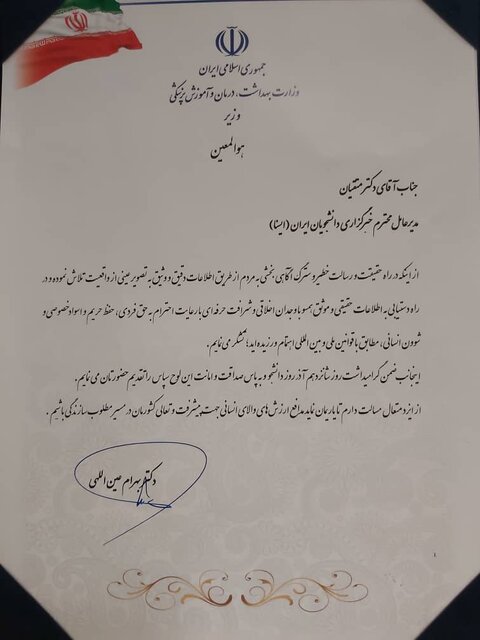 جمهوری اسلامی ایران
وزارت بهداشت، درمان و آموزش پزشکی
وزیر
هوالمعین
جناب آقای دکتر متقیان
مدیرعامل محترم خبرگزاری دانشجویان ایران (ایسنا)
از اینکه در راه حقیقت و رسالت خطیر و سترگ آگاهی بخشی به مردم از طریق اطلاعات دقیق و وثیق به تصویر عینی از واقعیت تلاش نموده و در
راه دستیابی به اطلاعات حقیقی و موثق همسو با وجدان اخلاقی و شرافت حرفه ای با رعایت احترام به حق فردی، حفظ حریم و اسرار خصوصی و
شوون انسانی، مطابق با قوانین ملی و بین المللی اهتمام ورزیده اید؛ تشکر می نمایم.
اینجانب ضمن گرامیداشت روز شانزدهم آذر روز دانشجو و به پاس صداقت و امانت این لوح سپاس را تقدیم حضورتان می نمایم.
از ایزد متعال مسالت دارم تا یاریمان نماید مدافع ارزش های والای انسانی جهت پیشرفت و تعالی کشورمان در مسیر مطلوب سازندگی باشیم.
دکتر بهرام عین اللهی